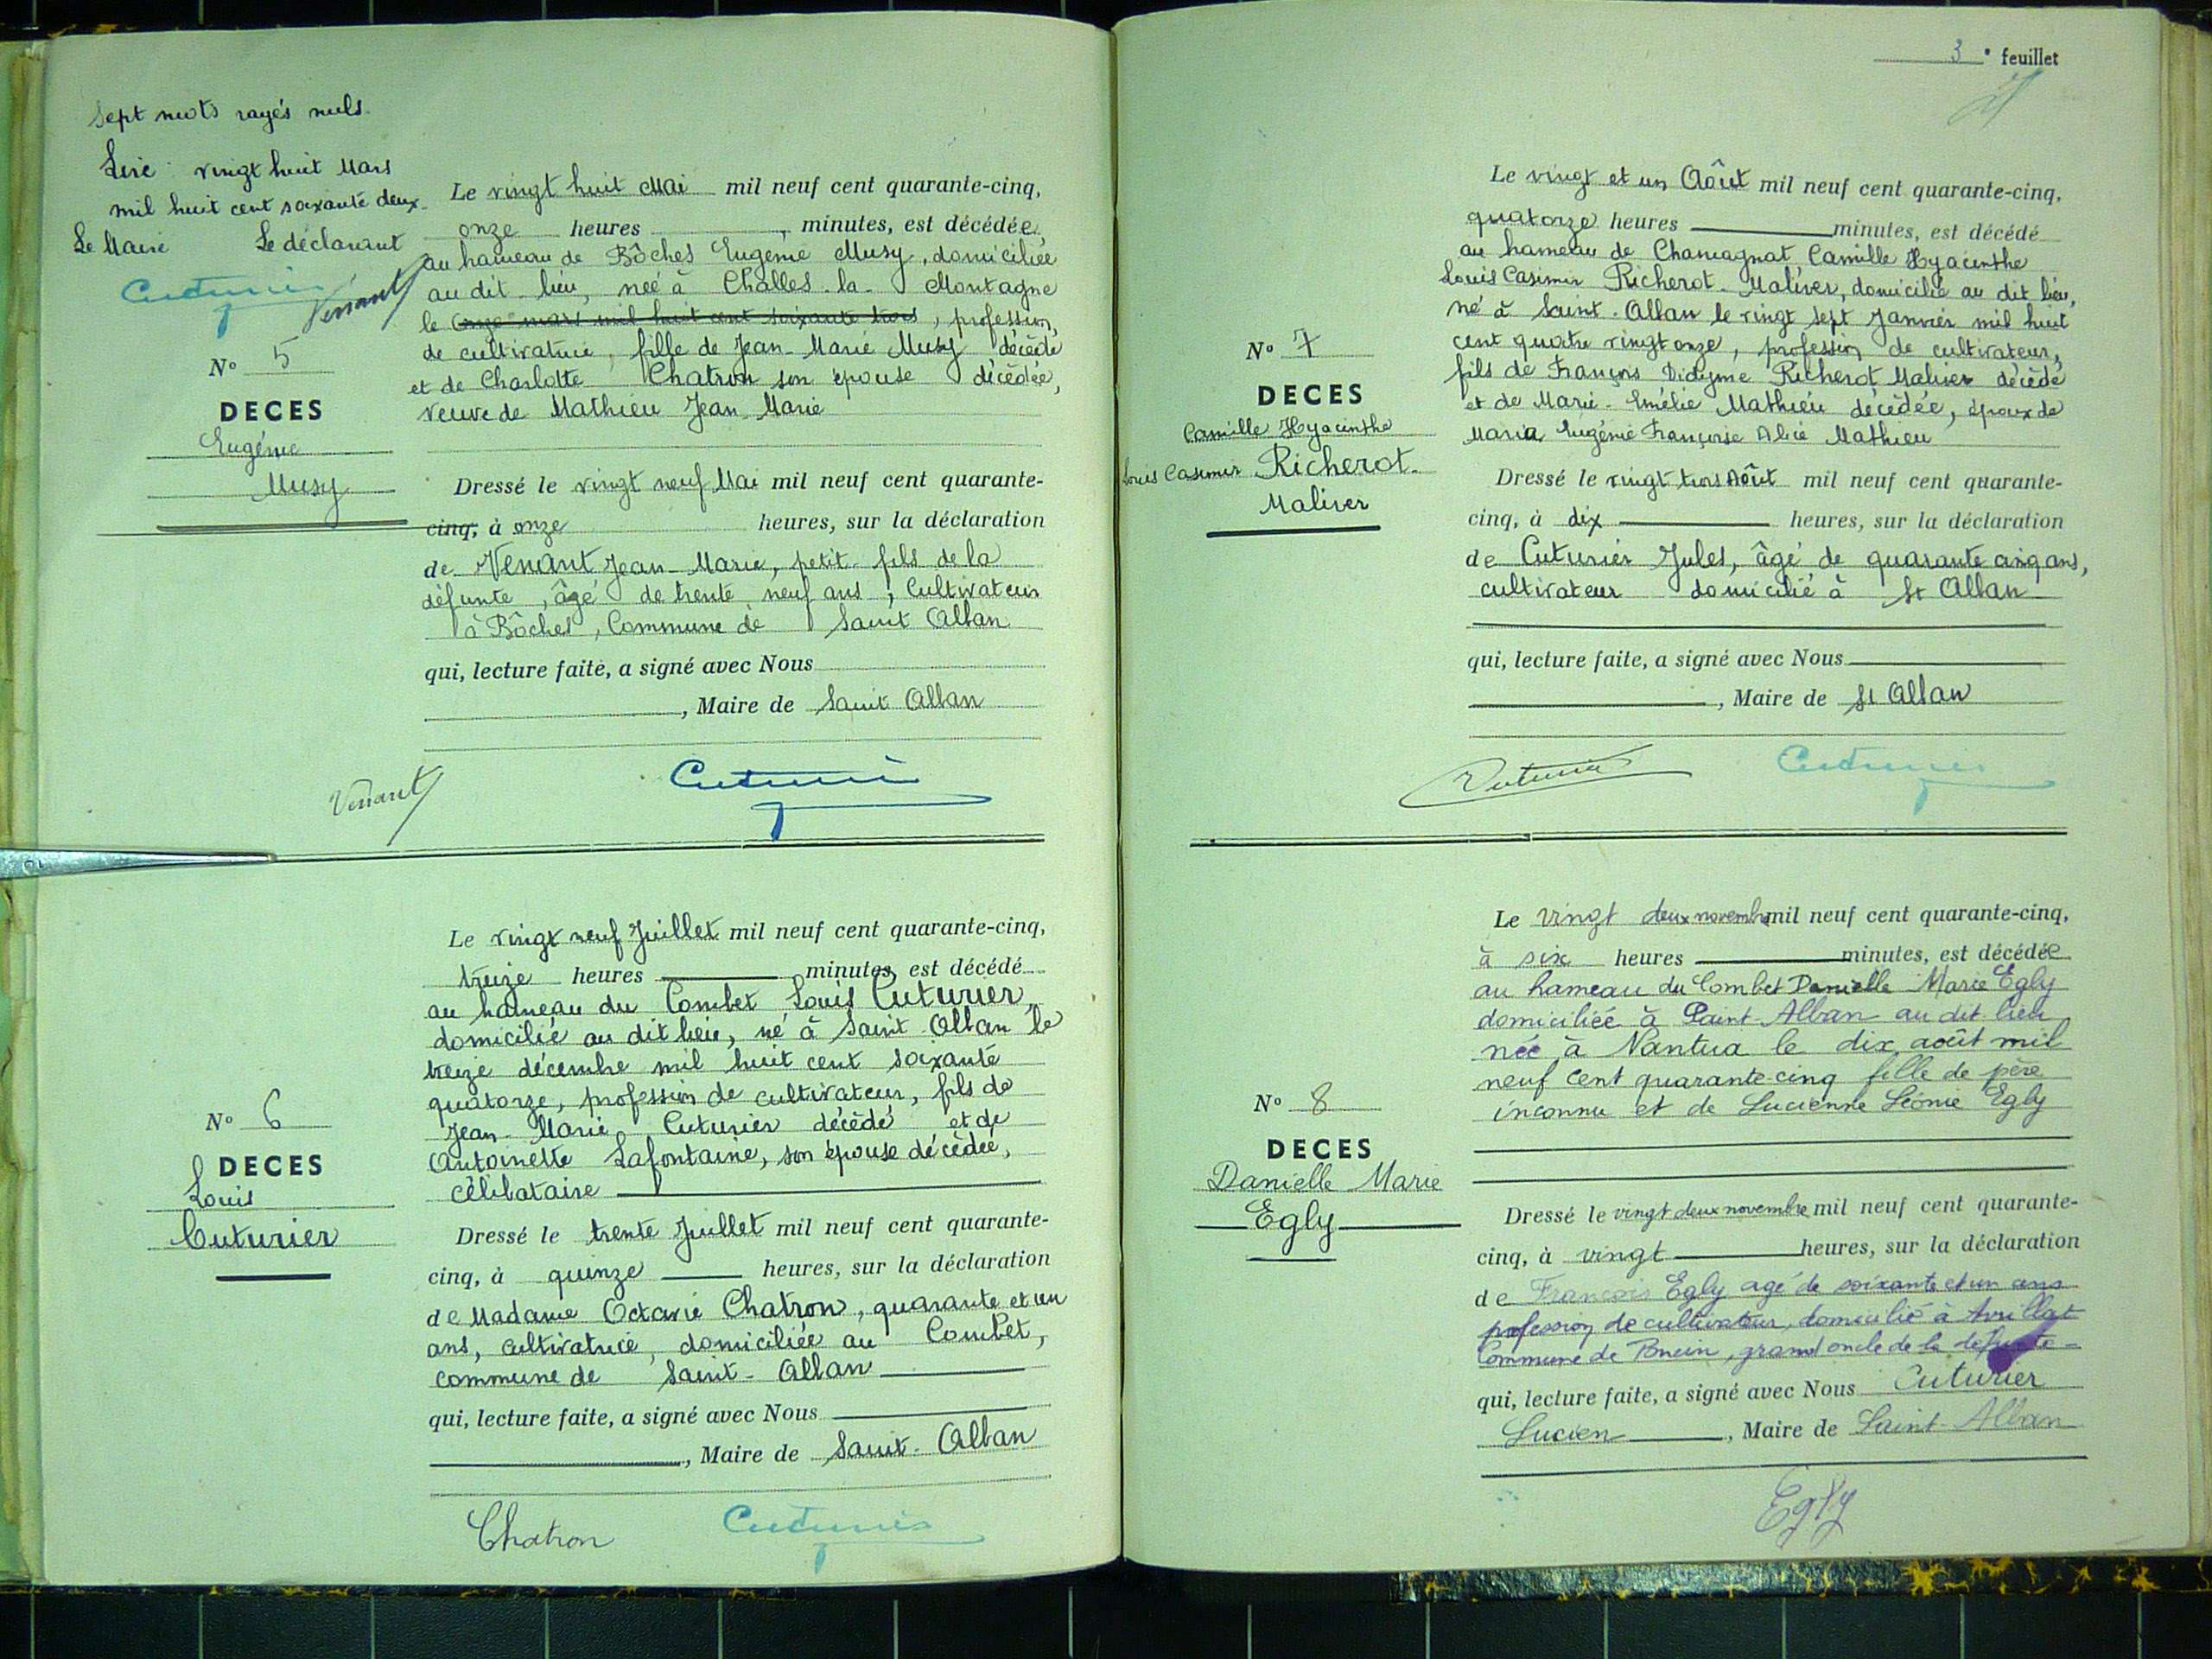 Sept mots rayés nuls.
Lire : vingt huit Mars
mil huit cent soixante deux.
Le Maire Le déclarant
Cuturier Venant
N° 5
DECES
Eugénie
Musy
Le vingt huit Mai mil neuf cent quarante-cinq,
onze heures minutes, est décédée
au hameau de Bôches Eugénie Musy, domiciliée
au dit lieu, née à Challes-la-Montagne
le onze mars mil huit cent soixante trois, profession
de cultivatrice, fille de Jean-Marie Musy décédé
et de Charlotte Chatron son épouse décédée,
veuve de Mathieu Jean Marie
Dressé le vingt neuf Mai mil neuf cent quarante-
cinq, à onze heures, sur la déclaration
de Venant Jean-Marie, petit-fils de la
défunte, âgé de trente neuf ans, Cultivateur
à Bôches, Commune de Saint Alban
qui, lecture faite, a signé avec Nous
, Maire de Saint Alban
Venant Cuturier
N° 6
DECES
Louis
Cuturier
Le vingt neuf Juillet mil neuf cent quarante-cinq,
treize heures minutes, est décédé
au hameau du Combet Louis Cuturier,
domicilié au dit lieu, né à Saint-Alban le
treize décembre mil huit cent soixante
quatorze, profession de cultivateur, fils de
Jean-Marie Cuturier décédé et de
Antoinette Lafontaine, son épouse décédée,
célibataire
Dressé le trente Juillet mil neuf cent quarante-
cinq, à quinze heures, sur la déclaration
de Madame Octavie Chatron, quarante et un
ans, cultivatrice, domiciliée au Combet,
commune de Saint-Alban
qui, lecture faite, a signé avec Nous
, Maire de Saint-Alban
Chatron Cuturier
3e feuillet
N° 7
DECES
Camille Hyacinthe
Louis Casimir Richerot-
Maliver
Le vingt et un Août mil neuf cent quarante-cinq,
quatorze heures minutes, est décédé
au hameau de Chamagnat Camille Hyacinthe
Louis Casimir Richerot-Maliver, domicilié au dit lieu,
né à Saint-Alban le vingt sept Janvier mil huit
cent quatre vingt onze, profession de cultivateur,
fils de François Didyme Richerot Maliver décédé
et de Marie-Emélie Mathieu décédée, époux de
Maria Eugénie Françoise Alice Mathieu
Dressé le vingt trois Août mil neuf cent quarante-
cinq, à dix heures, sur la déclaration
de Cuturier Jules, âgé de quarante cinq ans,
cultivateur domicilié à St Alban
qui, lecture faite, a signé avec Nous
, Maire de St Alban
Cuturier Cuturier
N° 8
DECES
Danielle Marie
Egly
Le vingt deux novembre mil neuf cent quarante-cinq,
à six heures minutes, est décédée
au hameau du Combet Danielle Marie Egly
domiciliée à Saint-Alban au dit lieu
née à Nantua le dix août mil
neuf cent quarante-cinq fille de père
inconnu et de Lucienne Léonie Egly
Dressé le vingt deux novembre mil neuf cent quarante-
cinq, à vingt heures, sur la déclaration
de François Egly agé de soixante et un ans
profession de cultivateur, domicilié à
Commune de, grand oncle de la défunte
qui, lecture faite, a signé avec Nous Cuturier
Lucien, Maire de Saint-Alban
Egly